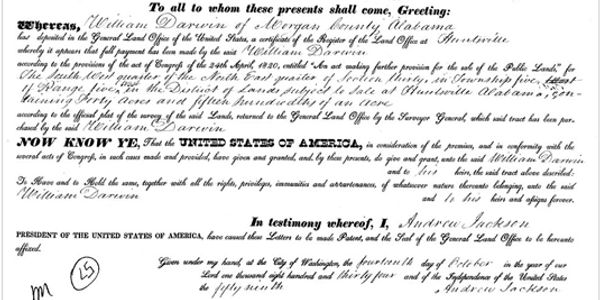 To all to whom these presents shall come, Greeting:
Whereas, William Darwin of Morgan County, Alabama
has deposited in the General Land Office of the United States, a certificate of the Register of the Land Office at Huntsville
whereby it appears that full payment has been made by the said William Darwin
according to the provision of the act of Congress of the 24th April, 1820, entitled "An act making further provision for the sale of the Public Lands," for
The South West quarter of the North East quarter of Section thirty, in Township five,
of Range five, in the District of Lands subject to Sale at Huntsville Alabama, con-
taining Forty Acres and fifteen hundredths of an acre
according to the official plat of the survey of the said Lands, returned to the General Land Office by the Surveyor General, which said tract has been pur-
chased by the said William Darwin
NOW KNOW YE, That the UNITED STATES OF AMERICA, in consideration of the premises, and in conformity with the
several acts of Congress, in such cases made and provided, have given and granted, and by these presents, do give and grant, unto the said William Darwin
and to his heirs, the said tract above described:
To Have and to Hold the same, together with all the rights, privileges, immunities and appurtenances, of whatsoever nature thereunto belonging, unto the said
William Darwin and to his heirs and assigns forever.
In testimony whereof, I, Andrew Jackson
PRESIDENT OF THE UNITED STATES OF AMERICA, have caused these Letters to be made Patent, and the Seal of the General Land Office to be hereunto
affixed.
Given under my hand, at the City of Washington, the fourteenth day of October in the year of our
Lord one thousand eight hundred and thirty four and of the Independence of the United States
the fifty ninth Andrew Jackson